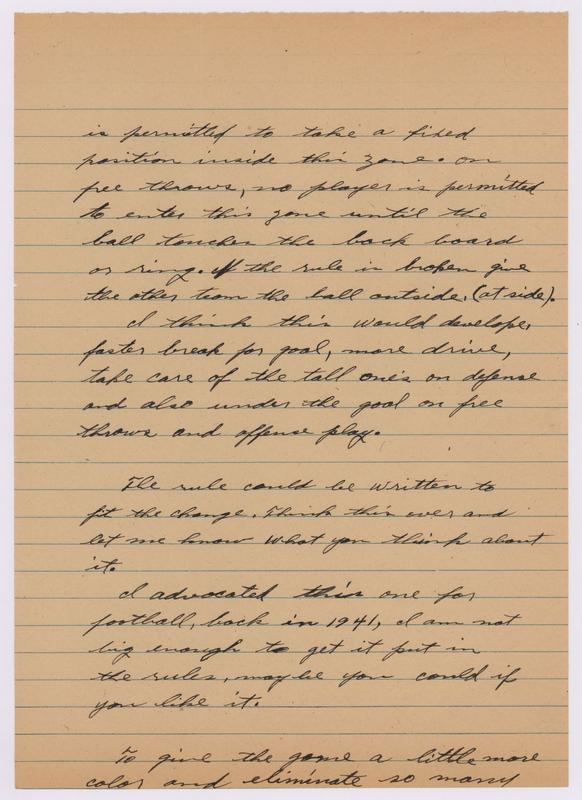 is permitted to take a fixed
position inside this zone. on
free throws, no player is permitted
to enter this zone until the
ball touches the back board
or ring. If the rule is broken give
the other team the ball outside, (at side).
I think this would develope,
faster break for goal, more drive,
take care of the tall one's on defense
and also under the goal on free
throws and offense play.
The rule could be written to
fit the change. Think this over and
let me know what you think about
it.
I advocated this one for
football, back in 1941, I am not
big enough to get it put in
the rules, maybe you could if
you like it.
To give the game a little more
color and eliminate so many